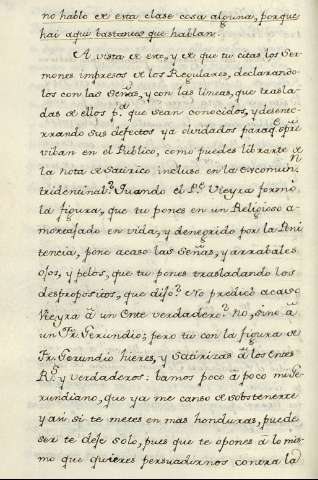 no hable de esta clase cosa alguna, porque
hai aqui bastantes que hablan.
A vista de esto, y de que tu citas los Ser-
mones impresos de los Regulares, declarando-
los con las Señas, y con las lineas, que trasla-
das de ellos pa que sean conocidos, y desente-
rrando sus defectos ya olvidados paraqe
viban en el Publico, como puedes librarte de
la nota de Satirico incluso en la excomun
tridentina? Quando el Pe Vieyra formó
la figura, que tu pones en un Religioso a-
mortajado en vida, y denegrido por la Peni
tencia, pone acaso las Señas, y arrabales
ojos, y pelos, que tu pones trasladando los
despropositos, que dijo? No predicó acaso
Vieyra à un Ente verdadero? no, sino à
un Fr. Gerundio; pero tu con la figura de
Fr. Gerundio hieres, y Satirizas à los Entes
Rs y verdaderos: bamos poco à poco mi Ge-
rundiano, que ya me canso de sobstenerte
y aún si te metes en mas honduras, puede
ser te deje solo, pues que te opones à lo mis-
mo que quieres persuadirnos contra la